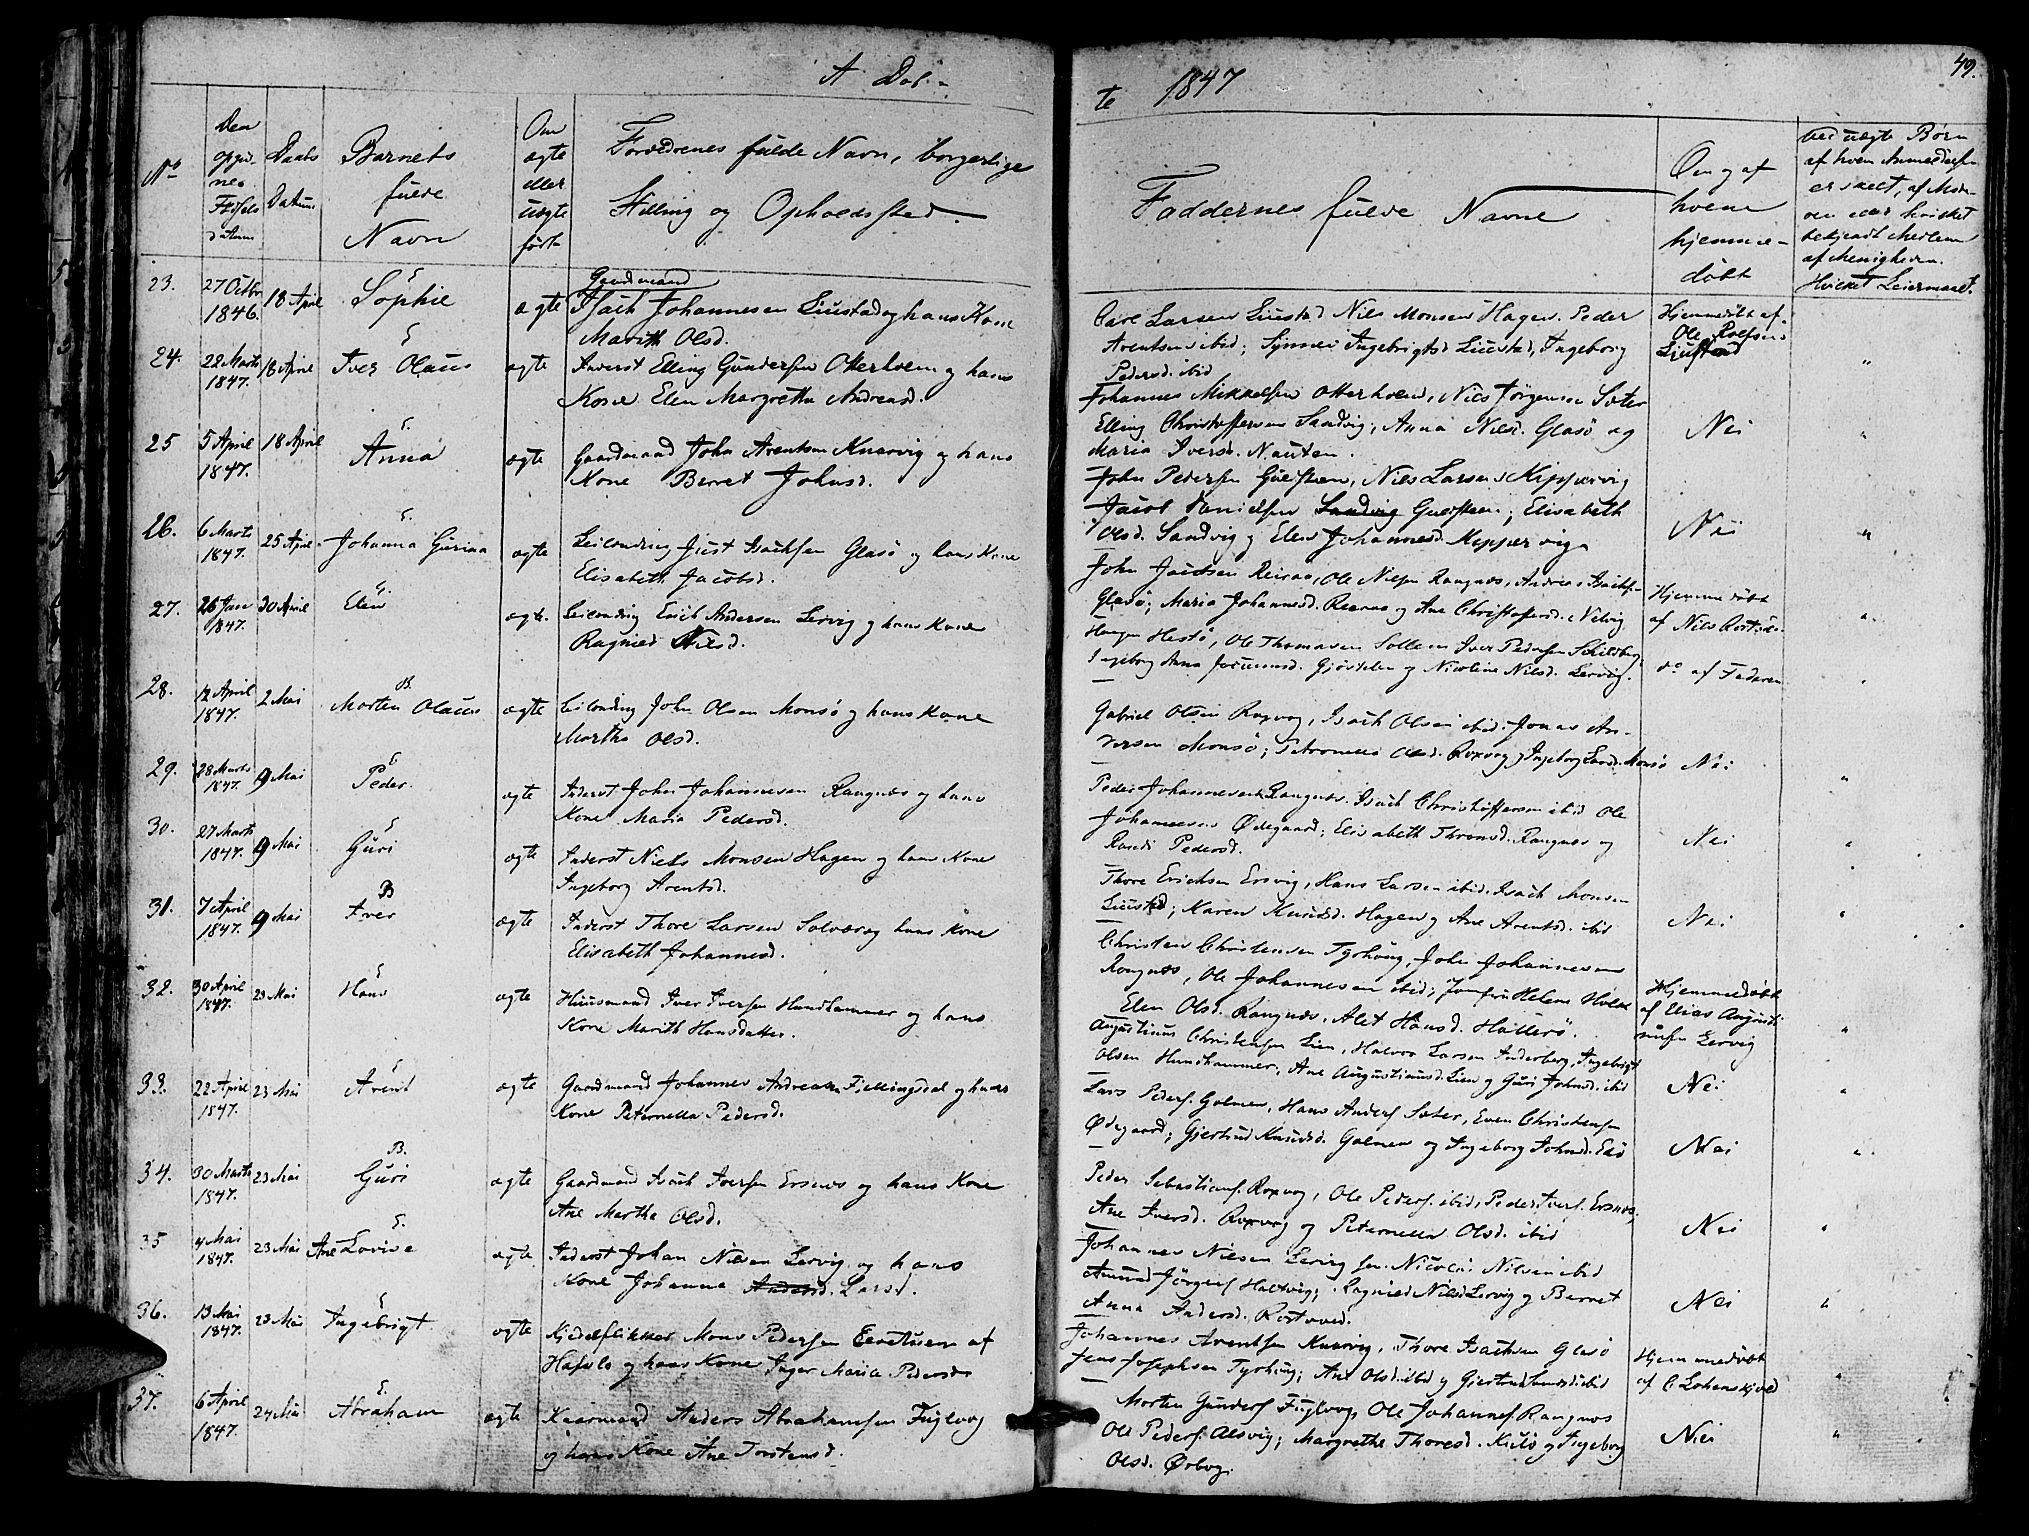 A Døb-
te 1847
49.
No
Den opgivne Fødselsdatum
Daabs Datum
Barnets fulde Navn
Om ægte eller uægte født
Forældrenes fulde Navn, borgerlige Stilling og Opholdssted.
Faddernes fulde Navne
Om og af hvem hjemmedøbt
23. 27 Octbr 1846. 18 April E. Sophie ægte Gaardmand Isach Johannesen Liustad og hans Kone
Marith Olsd.
Carl Larsen Liustad Nils Monsen Hagen. Peder
Arentsen ibid; Synnei Ingebrigtsd Liustad, Ingeborg
Pedersd. ibid
Hjemmedøbt af
Ole Rolfsen
Liustad "
24. 22 Marts 1847. 18 April E Iver Olaus ægte Inderst Elling Gundersen Otterholm og hans
Kone Elen Margrethe Andreasd.
Johannes Mikkelsen Otterholm, Nils Jørgensen Sæter
Elling Christoffersen Sandvig; Anna Nilsd. Glasø og
Maria Iversd. Nauten.
Nei "
25 5 April 1847. 18 April E. Anna ægte Gaardmand John Arentsen Knarvig og hans
Kone Berret Johnsd.
John Pedersen Guldsteen, Nils Larsen Kippervig
Jacob Danielsen Sandvig Guldsteen; Elisabeth
Olsd. Sandvig og Elen Johannesd. Kippervig.
Nei "
26. 6 Marts 1847. 25 April E. Johanna Gurina ægte Leilending Just Isachsen Glasø og hans Kone
Elisabeth Jacobsd.
John Jacobsen Reiraas, Ole Nilsen Rangnæs, Andreas Isachsen
Glasø; Maria Johannesd. Reiraas og Ane Christoffersd. Nelvig
Hjemmedøbt
af Nils "
27. 26 Jan 1847. 30 April E Elen ægte. Leilending Erich Andersen Lervig og hans Kone
Ragnild Nilsd.
Hestø, Ole Thomasen Solem Iver Pedersen
Ingeborg Anna Gjøstølen og Nicoline Nilsd. Lervig.
do af Faderen "
28. 12 April 1847. 2 Mai B. Morten Olaus ægte Leilending John Olsen Monsø og hans Kone
Martha Olsd.
Gabriel Olsen Roxvog, Isach Olsen ibid Jonas An-
dersen Monsø; Petronella Olsd. Roxvog og Ingeborg Larsd. Monsø
Nei "
29. 28 Marts 1847. 9 Mai E Peder. ægte Inderst John Johannesen Rangnæs og hans
Kone Maria Pedersd.
Peder Johannesen Rangnæs. Isach Christoffersen ibid Ole
Johannesen Ødegaard; Elisabeth Thronsd. Rangnæs og
Randi Pedersd.
Nei "
30. 27 Marts 1847. 9 Mai E Guri ægte Inderst Niels Monsen Hagen og hans Kone
Ingeborg Arentsd.
Thore Erichsen Ersvig, Hans Larsen ibid. Isach Monsen
Liustad; Karen Knudsd. Hagen og Ane Arentsd. ibid
Nei "
31. 7 April 1847. 9 Mai B Iver ægte Inderst Thore Larsen Solvær og hans Kone
Elisabeth Johannesd.
Christen Christensen Tyrhoug, John Johannesen
Rangnæs, Ole Johannesen ibid; Jomfru Helene
Elen Olsd. Rangnæs, Alet Hansd. Hallerø.
Hjemmedøbt
af Elias Augusti
nusen Lervig "
32. 30 April 1847. 23 Mai E Hans ægte Huusmand Iver Iversen Hundhammer og hans
Kone Marith Hansdatter.
Augustinus Christensen Lien, Halvor Larsen Anderberg, Ingebrigt
Olsen Hundhammer, Ane Augustinusd. Lien og Guri Johnsd. ibid
Nei "
33. 22 April 1847. 23 Mai E Arent ægte Gaardmand Johannes Andreasen Fjellingsdal og hans
Kone Peternella Pedersd.
Lars Peders. Golmen, Hans Anders. Sæter, Even Christensen
Ødegaard; Gjertrud Knudsd. Golmen og Ingeborg Johnsd. Edø
Nei "
34. 30 Marts 1847. 23 Mai B. Guri ægte Gaardmand Isach Iversen Ersnæs og hans Kone
Ane Martha Olsd.
Peder Sebastians. Roxvog, Ole Peders. ibid, Peder Ivers. Ersnæs,
Ane Iversd. Roxvog og Peternella Olsd. ibid
Nei "
35 4 Mai 1847. 23 Mai E. Ane Lovise ægte Inderst Johan Nielsen Lervig og hans
Kone Johanna Andersd. Larsd.
Johannes Nielsen Lervig sen. Nicolai Nilsen ibid
Amund Jørgens Holtvig; Ragnild Nilsd Lervig og Berret
Anna Andersd. Rostvold.
Nei "
36. 13 Mai 1847. 23 Mai E Ingebrigt ægte Kjedelflikker Mons Pedersen Eenstuen af
Hafslo og hans Kone Inger Maria Pedersd.
Johannes Arentsen Knarvig, Thore Isachsen Glasø
Jens Josephsen Tyrhoug; Ane Olsd. ibid og Gjertrud ibid
Hjemmedøbt
af C Lohenskjold "
37. 6 April 1847. 24 Mai E. Abraham ægte Kaarmand Anders Abrahamsen Fuglvog
og hans Kone Ane Torstensd.
Morten Gunders Fuglvog, Ole Johannes. Rangnæs
Ole Peders. Alsvig; Margrethe Thoresd. Kulø og Ingeborg
Olsd. Ørbog.
Nei "